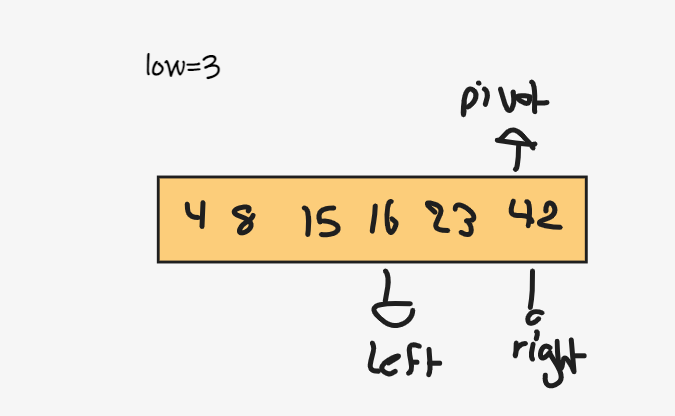 low=3
pivot
4 8 15 16 23 42
left right